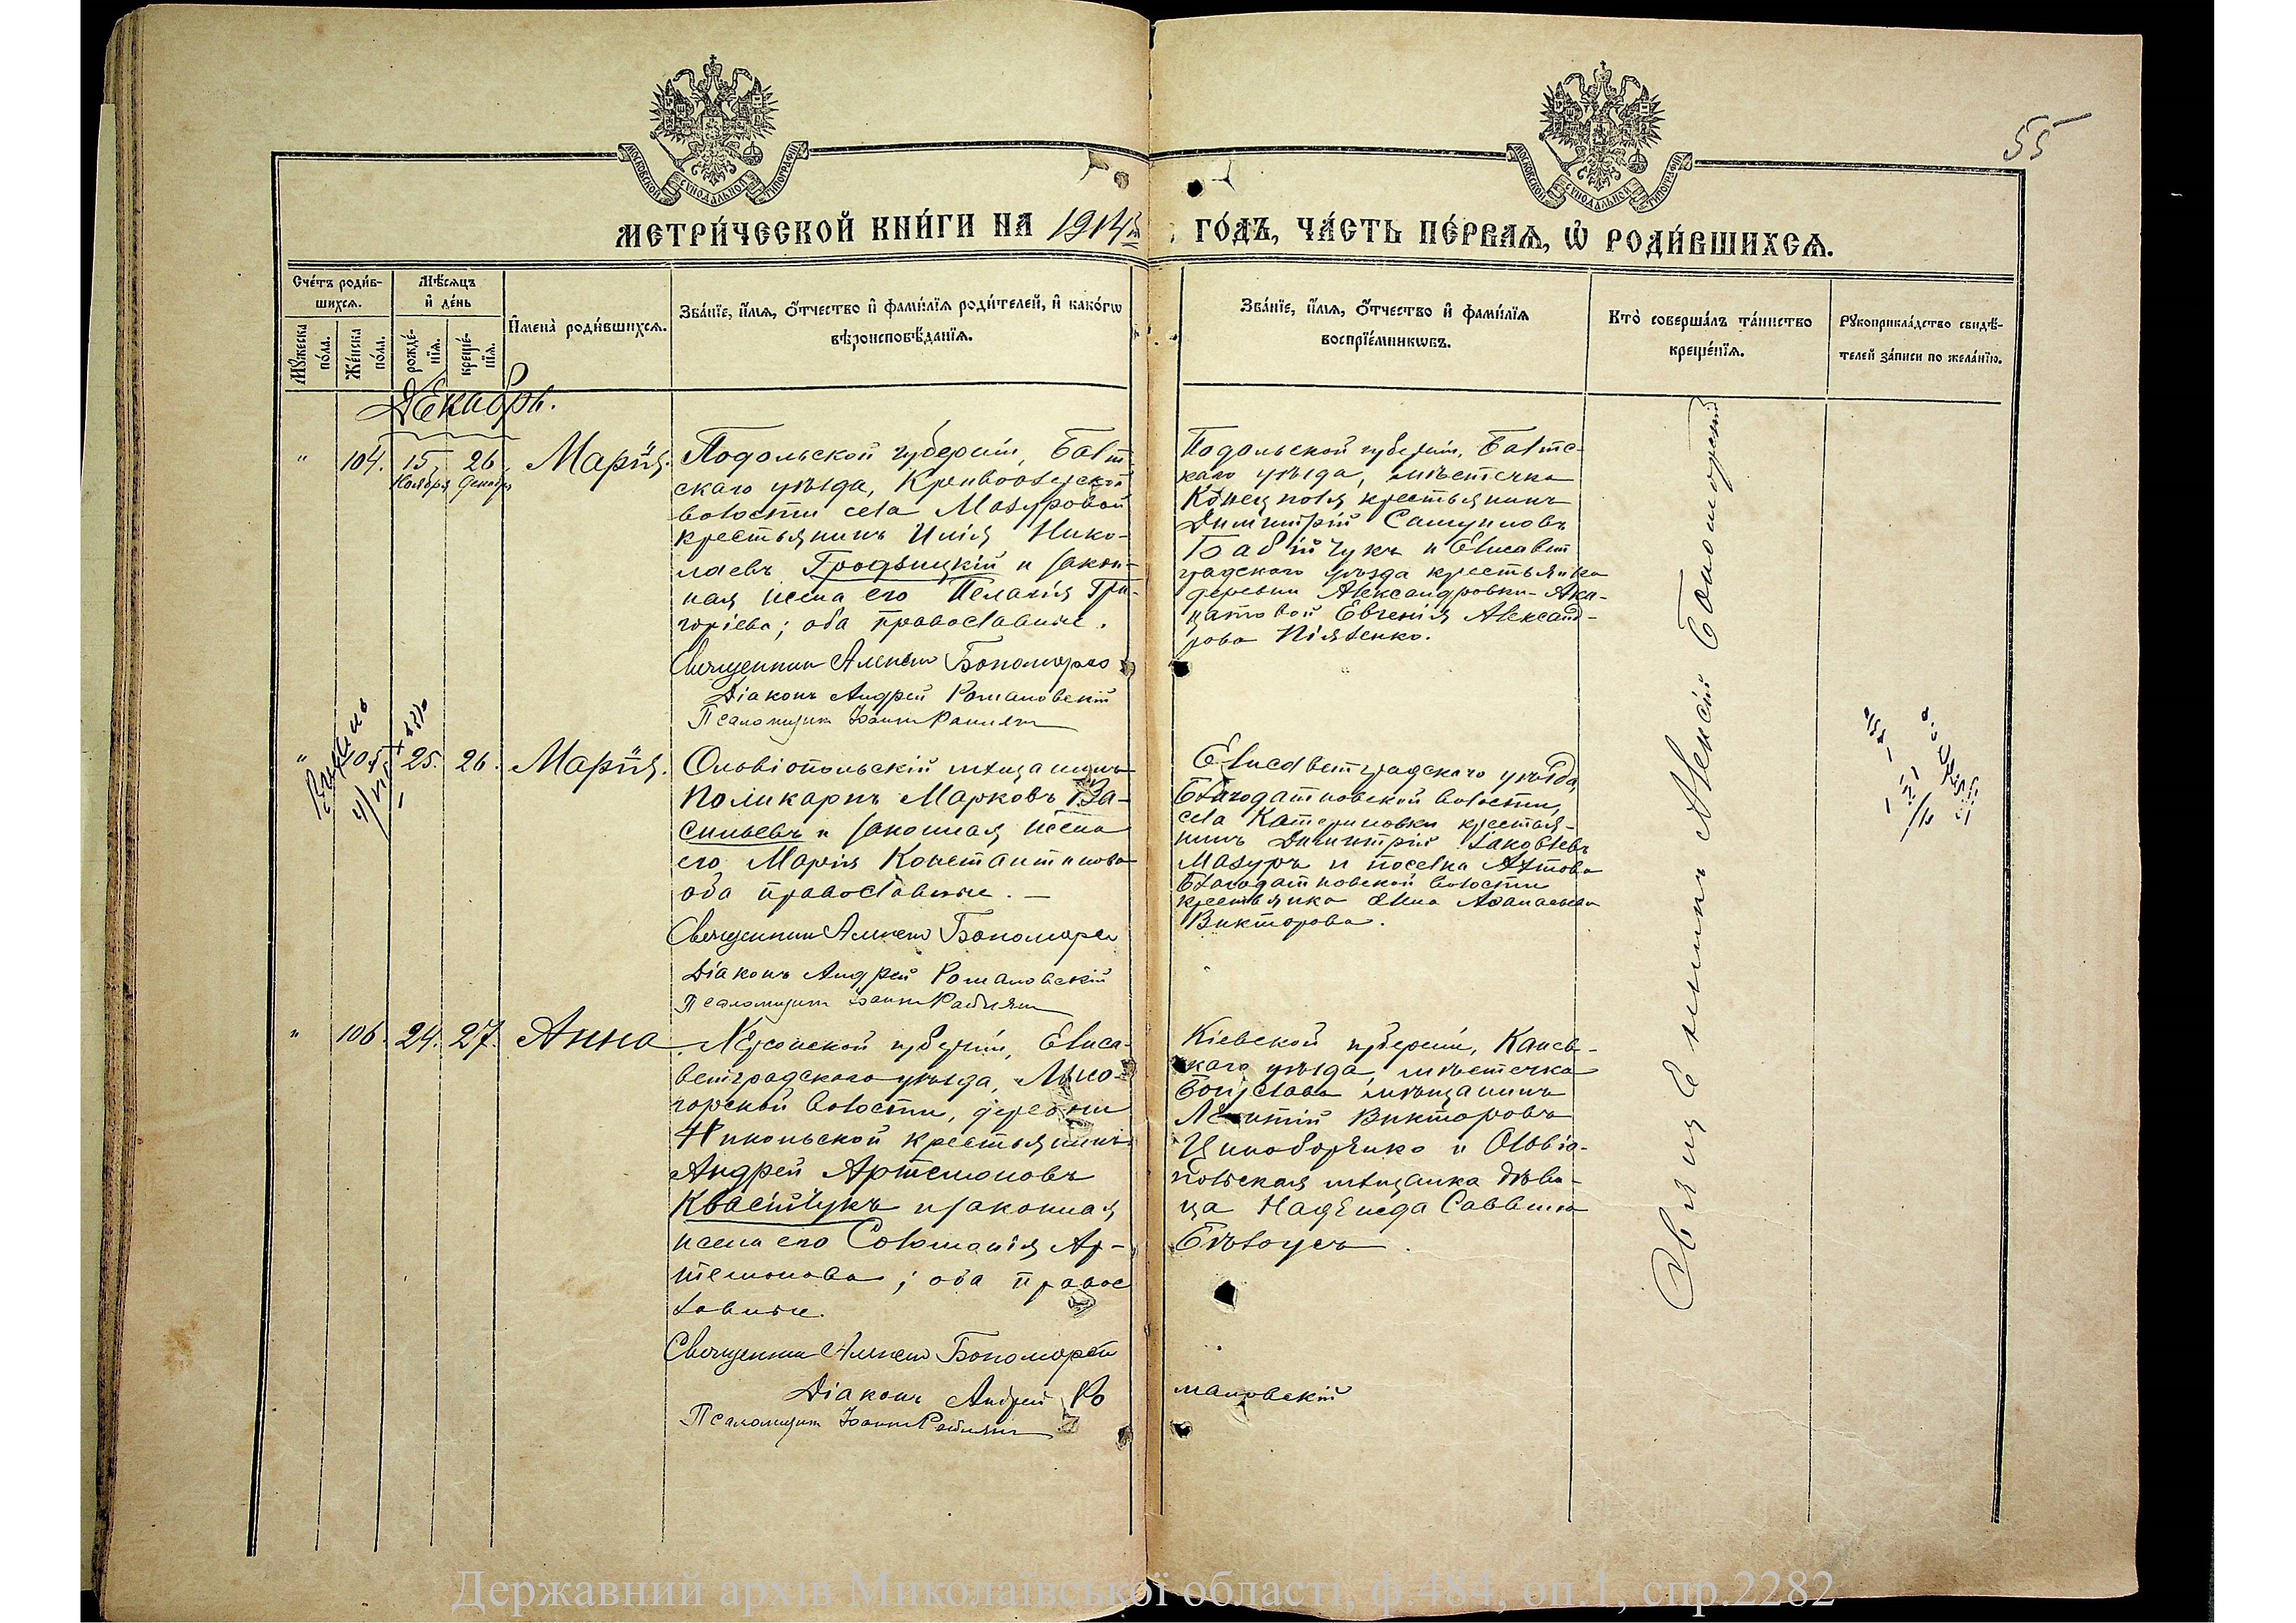 МОСКОВСКОЙ СѴНОДАЛЬНОЙ ТИПОГРАФІИ
МОСКОВСКОЙ СѴНОДАЛЬНОЙ ТИПОГРАФІИ
55
МЕТРИ́ЧЕСКОЙ КНИ́ГИ НА 1914й ГО́ДЪ, ЧА́СТЬ ПЕ́РВАѦ, Ѡ҆ РОДИ́ВШИХСѦ.
Сче́тъ роди́в-
шихсѧ.
Мꙋ́жеска по́ла.
Же́нска по́ла.
Мѣ́сѧцъ
и҆ де́нь
рожде́-нїѧ.
креще́-нїѧ.
И҆мена̀ роди́вшихсѧ.
Зва́нїе, и҆́мѧ, ѻ҆́тчество и҆ фами́лїѧ роди́телей, и҆ како́гѡ
вѣроисповѣ́данїѧ.
Зва́нїе, и҆́мѧ, ѻ҆́тчество и҆ фами́лїѧ
воспрїе́мникѡвъ.
Кто̀ соверша́лъ та́инство
креще́нїѧ.
Рꙋкоприкла́дство свидѣ́-
телей за́писи по жела́нїю.
Декабрь.
" 104. 15 Ноября 26 Декабря Марія.
Подольской губерніи, Балт-
скаго уѣзда, Кривоозерской
волости села Мазуровой
крестьянинъ Илія Нико-
лаевъ Гродзицкій и закон-
ная жена его Пелагія Гри-
горіева; оба православные.
Священникъ Алексій Бономорскій
Діаконъ Андрей Романовскій
Псаломщикъ Іоаннъ
Подольской губерніи, Балтс-
каго уѣзда, мѣстечка
Конецполя крестьянинъ
Димитрій Самуиловъ
Бабійчукъ и Елисавет
градского уѣзда крестьянка
деревни Александровки-Ака-
цатовой Евгенія Александ-
рова
" 105. 25. 26. Марія.
Ольвіопольскій мѣщанинъ
Поликарпъ Марковъ Ва-
сильевъ и законная жена
его Марія Константинова
оба православные. —
Священникъ Алексій
Діаконъ Андрей Романовскій
Псаломщикъ Іоаннъ
Елисаветградскаго уѣзда,
Благодатновской волости,
села Катериновки крестья-
нинъ Димитрій Іаковлевъ
Мазуръ и поселка
Благодатновской волости
крестьянка Анна Аѳанасьева
Викторова.
" 106. 24. 27. Анна
Херсонской губерніи, Елиса-
ветградскаго уѣзда, Лысо-
горской волости, деревни
Никольской крестьянинъ
Андрей Артемоновъ
Квасійчукъ и законная
жена его Соломанія Ар-
темонова; оба правос
лавные.
Священникъ Алексій
Діаконъ Андрей Романовскій
Псаломщикъ Іоаннъ
Кіевской губерніи, Канев-
скаго уѣзда, мѣстечка
Богуслава мѣщанинъ
Леонтій Викторовъ
и Ольвіо-
польская мѣщанка дѣви-
ца Надежда Саввина
Бѣлоусъ.
Священникъ Алексій
Державний архів Миколаївської області, ф.484, оп.1, спр.2282